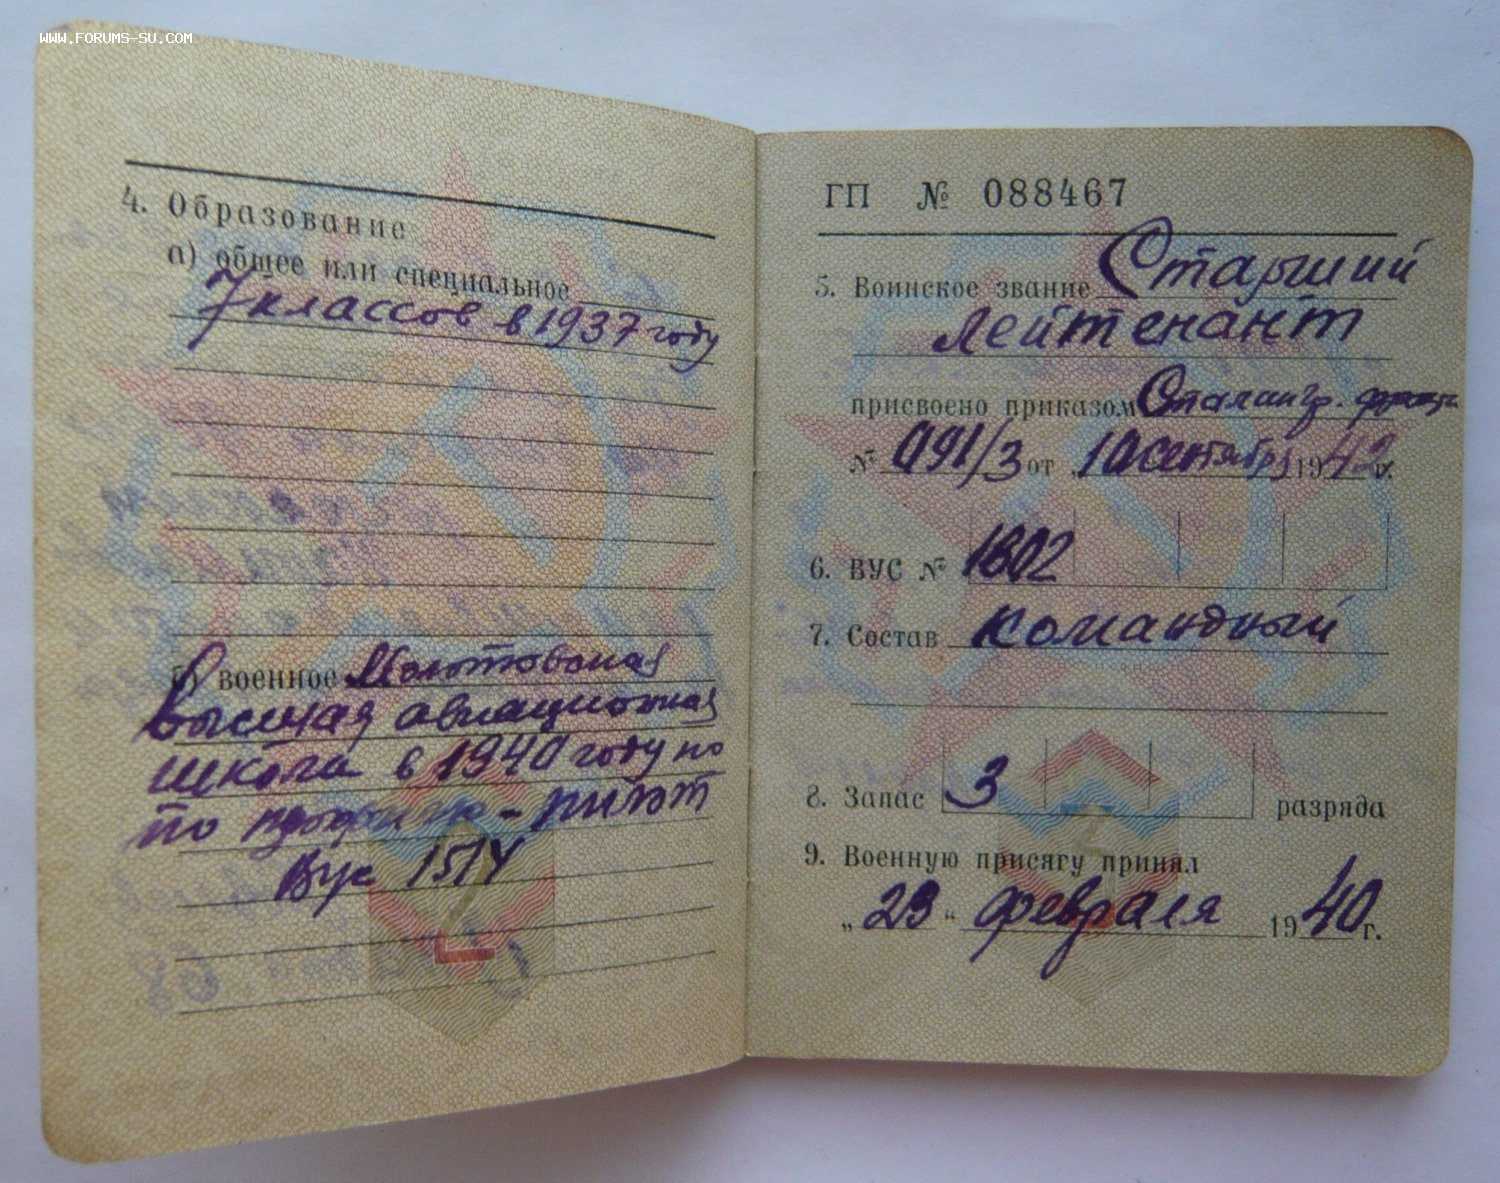 WWW.FORUMS-SU.COM
4. Образование
а) общее или специальное
7 классов в 1937 году
б) военное Молотовская
высшая авиационная
школа в 1940 году по
по профилю - пилот
Вус 1514
ГП № 088467
5. Воинское звание Старший
лейтенант
присвоено приказом Сталингр. фронта
№ 091/3 от 10 сентября 1942 г.
6. ВУС № 1802
7. Состав командный
8. Запас 3 разряда
9. Военную присягу принял
„23“ февраля 1940 г.